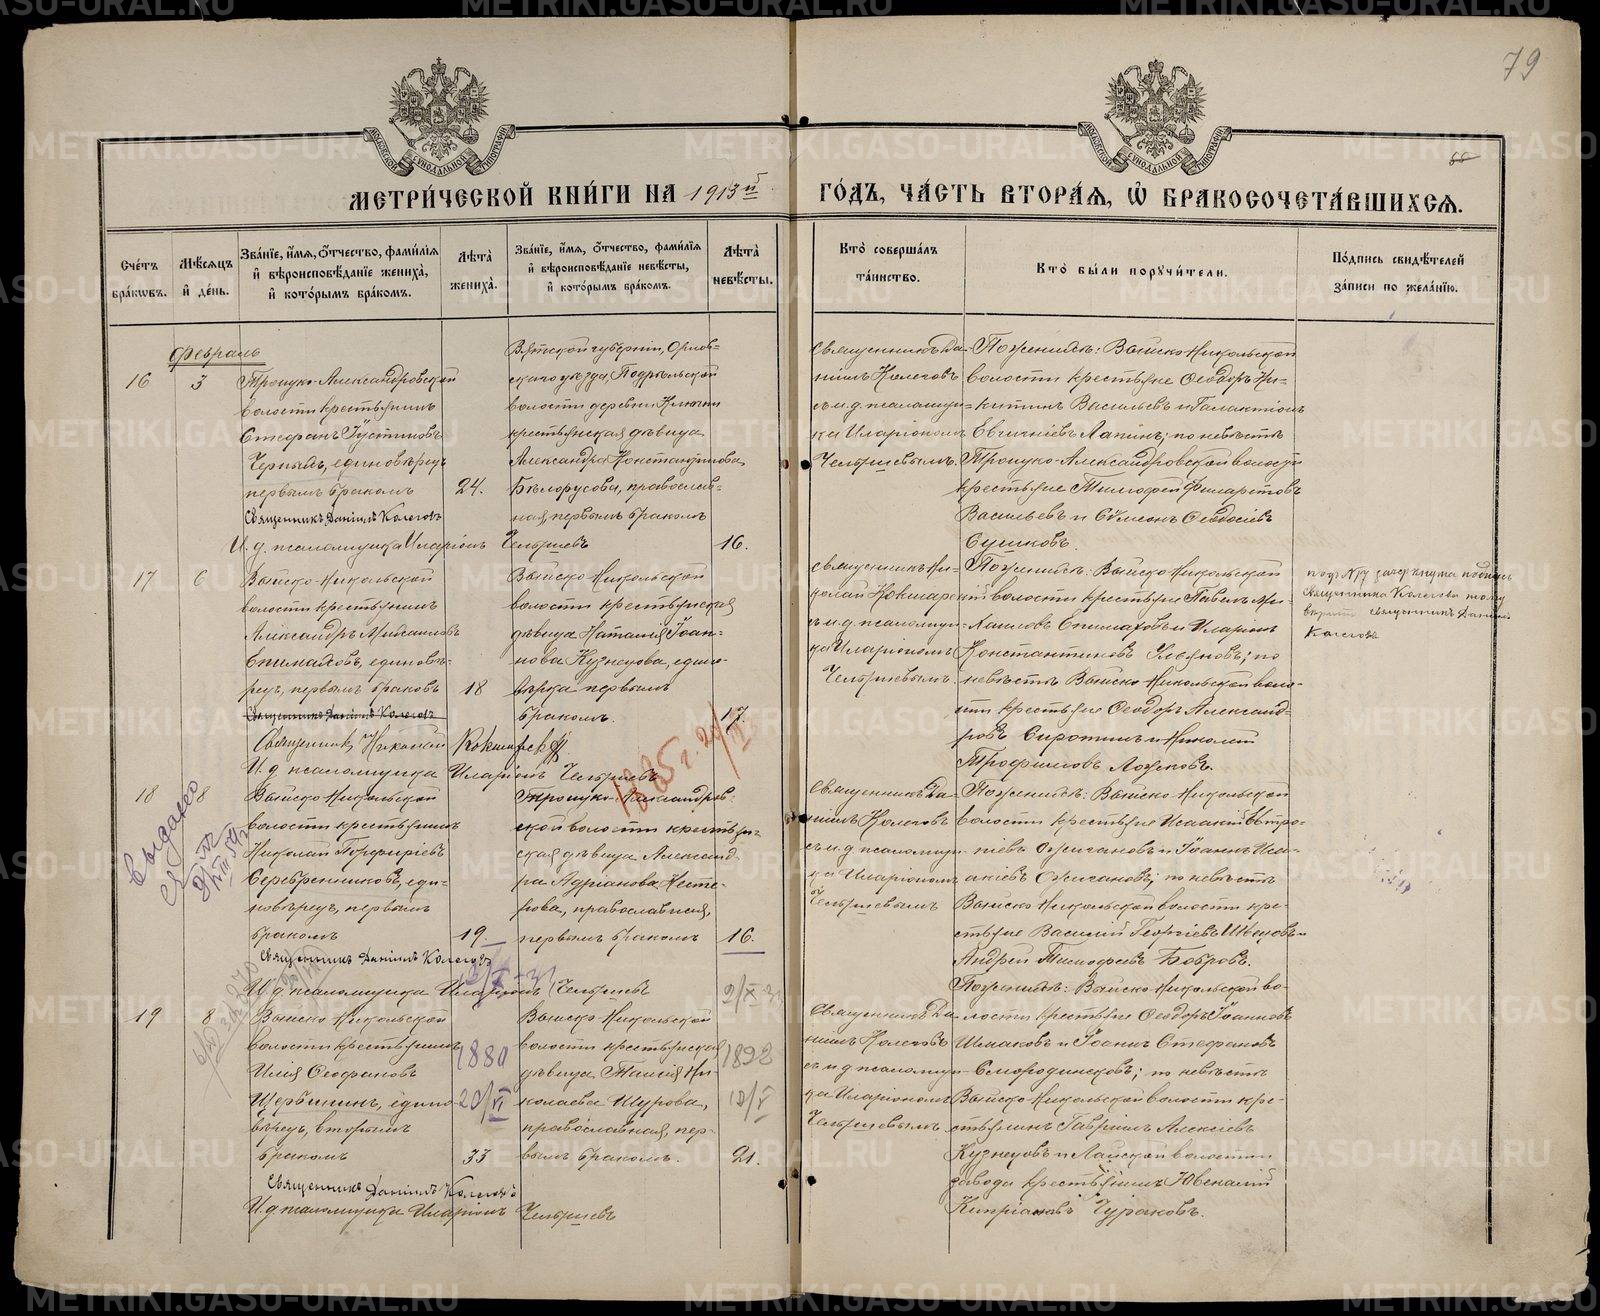 79
МЕТРИ́ЧЕСКОЙ КНИ́ГИ НА 1913й ГО́ДЪ, ЧА́СТЬ ВТОРА́Я, Ѽ БРАКОСОЧЕТА́ВШИХСЯ.
Сче́тъ бра́кωвъ.
Мѣ́сяцъ и҆ де́нь.
Зва́нїе, и҆́мя, ѻ҆́тчество, фами́лїя и҆ вѣроисповѣ́данїе жениха̀, и҆ кото́рымъ бра́комъ.
Лѣ́та жениха̀.
Зва́нїе, и҆́мя, ѻ҆́тчество, фами́лїя и҆ вѣроисповѣ́данїе невѣ́сты, и҆ кото́рымъ бра́комъ.
Лѣ́та невѣ́сты.
Кто̀ соверша́лъ та́инство.
Кто̀ бы́ли порꙋчи́тели.
По́дпись свидѣ́телей за́писи по жела́нїю.
Февраль
16
3
Троицко-Александровской
волости крестьянинъ
Стефанъ Іустиновъ
Черныхъ, единовѣрецъ
первымъ бракомъ
24.
Священникъ Даніилъ Колеговъ
И. д. псаломщика Иларіонъ
Вятской губерніи, Орлов-
скаго уѣзда, Подрельской
волости деревни
крестьянская дѣвица
Александра Константинова
Бѣлорусова, православ-
ная, первымъ бракомъ
16.
Священникъ Да-
ніилъ Колеговъ
съ и. д. псаломщи-
ка Иларіономъ
По женихѣ: Выйско-Никольской
волости крестьяне Ѳеодоръ Ни-
китинъ Васильевъ и Галактіонъ
Евгеніевъ Лапинъ; по невѣстѣ
Троицко-Александровской волости
крестьяне Тимофей Филаретовъ
Васильевъ и Сѵмеонъ Ѳеодосіевъ
Сушковъ.
17
6
Выйско-Никольской
волости крестьянинъ
Александръ Михаиловъ
Епимаховъ, единовѣ-
рецъ, первымъ бракомъ
18
Священникъ Даніилъ Колеговъ
Священникъ Николай Кокшаровъ
И. д. псаломщика Иларіонъ
Выйско-Никольской
волости крестьянская
дѣвица Наталія Іоан-
нова Кузнецова, едино-
вѣрка первымъ
бракомъ.
17.
1885 г.
Священникъ Ни-
колай Кокшаровъ
съ и. д. псаломщи-
ка Иларіономъ
По женихѣ: Выйско-Никольской
волости крестьяне Павелъ Ми-
хаиловъ Епимаховъ и Иларіонъ
Константиновъ Ульяновъ; по
невѣстѣ Выйско-Никольской воло-
сти крестьяне Ѳеодоръ Александ-
ровъ Сиротинъ и Николай
Трофимовъ Ложковъ.
под № 17 зачеркнута подпись
Священника Колегова
священникъ Даніилъ
Колеговъ
18
8
Выдано
Выйско-Никольской
волости крестьянинъ
Николай Порфиріевъ
Серебренниковъ, еди-
новѣрецъ, первымъ
бракомъ
19.
Священникъ Даніилъ Колеговъ
И. д. псаломщика Иларіонъ
Троицко-Александров-
ской волости крестьян-
ская дѣвица Александ-
ра Адріанова Несте-
рова, православная,
первымъ бракомъ
16.
Священникъ Да-
ніилъ Колеговъ
съ и. д. псаломщи-
ка Иларіономъ
По женихѣ: Выйско-Никольской
волости крестьяне Исаакій Петро-
Ожигановъ и Іоаннъ Иса-
акіевъ Ожигановъ; по невѣстѣ
Выйско-Никольской волости кре-
стьяне Василій Георгіевъ Швецовъ и
Андрей Тимофеевъ Бобровъ.
19
8
Выйско-Никольской
волости крестьянинъ
Илія Ѳеофановъ
Щербининъ, едино-
вѣрецъ, вторымъ
бракомъ
1880
20/VI
33
Священникъ Даніилъ Колеговъ
И. д. псаломщика Иларіонъ
Выйско-Никольской
волости крестьянская
дѣвица Таисія Ни-
колаева Шурова,
православная, пер-
вымъ бракомъ.
1892
10/V
21.
Священникъ Да-
ніилъ Колеговъ
съ и. д. псаломщи-
ка Иларіономъ
По женихѣ: Выйско-Никольской во-
лости крестьяне Ѳеодоръ Іоанновъ
Шмаковъ и Іоаннъ Стефановъ
Смородинсковъ; по невѣстѣ
Выйско-Никольской волости кре-
стьянинъ Гавріилъ Алексіевъ
Кузнецовъ и Лайской волости
завода крестьянинъ Ювеналій
Кипріановъ Чураковъ.
METRIKI.GASO-URAL.RU